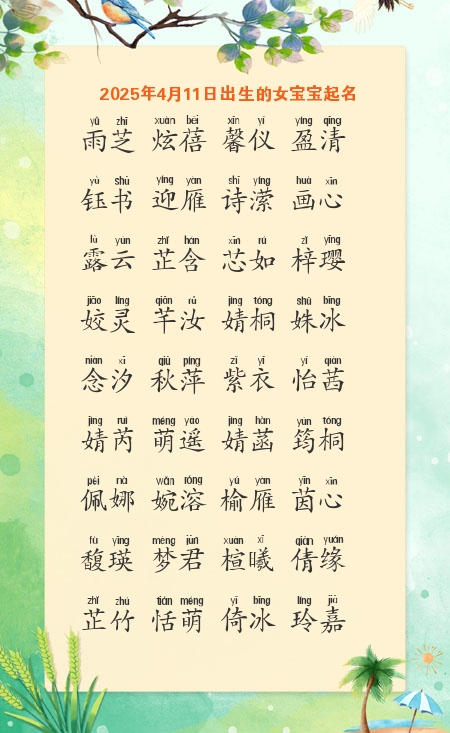 2025年4月11日出生的女宝宝起名
yǔ zhī xuàn bèi xīn yí yíng qīng
雨芝 炫蓓 馨仪 盈清
yù shū yíng yàn shī yíng huà xīn
钰书 迎雁 诗潆 画心
lù yún zhǐ hán xīn rú zǐ yīng
露云 芷含 芯如 梓璎
jiāo líng qiān rǔ jìng tóng shū bīng
姣灵 芊汝 婧桐 姝冰
niàn xī qiū píng zǐ yī yí qiàn
念汐 秋萍 紫衣 怡茜
jìng ruì méng yáo jìng hàn yún tóng
婧芮 萌遥 婧菡 筠桐
pèi nà wǎn róng yú yàn yīn xīn
佩娜 婉溶 榆雁 茵心
fù yīng mèng jūn xuān xī qiàn yuán
馥瑛 梦君 楦曦 倩缘
zhǐ zhú tián méng yǐ bīng líng jiā
芷竹 恬萌 倚冰 玲嘉